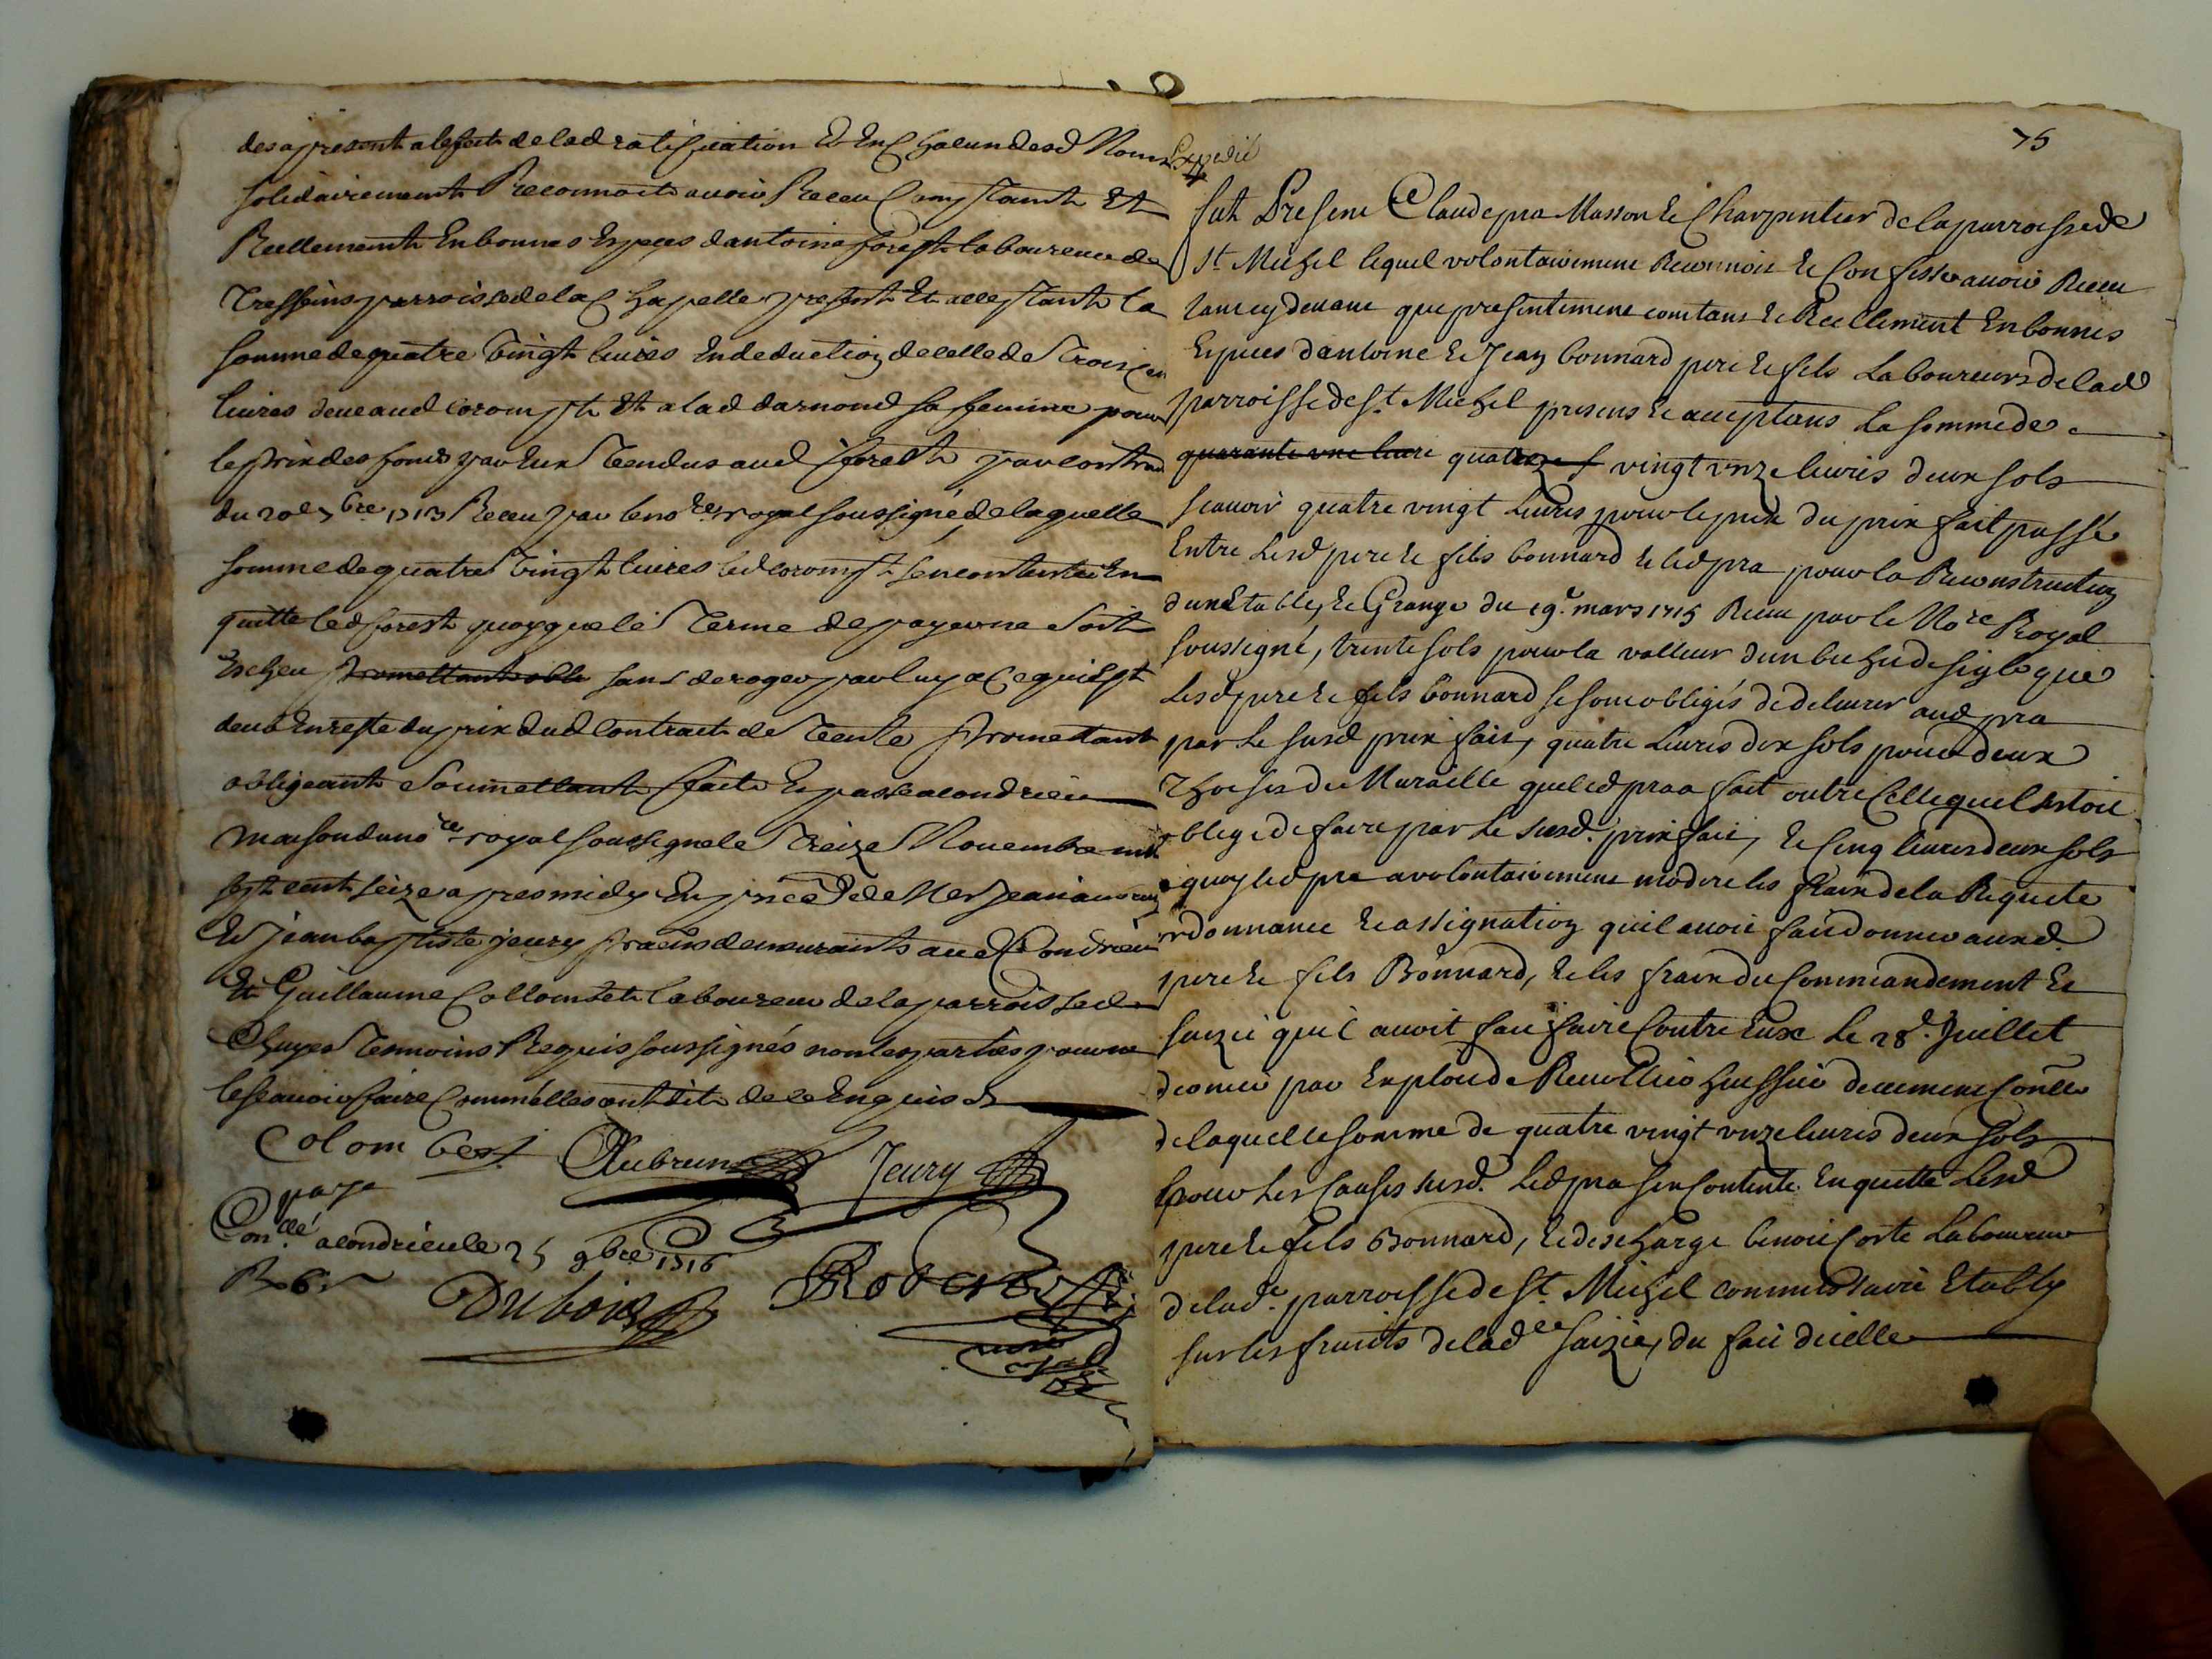 des a present a leffect de lad ratiffication Et En Chacun desd Noms
solidairement Reconnoit avoir Receu Comptant Et
Reellement En bonnes Especes dantoine forest laboureur de
Tressins parroisse de la Chapelle present Et acceptant la
somme de quatre vingt livres En deduction de celle de Trois Cen
livres deue aud Corompt Et a lad darnoud sa femme pour
le prix des fonds par Eux vendus aud forest par contrac
du 20e 7bre 1713 Receu par le nore royal soussigné, de laquelle
somme de quatre vingt livres led Corompt sen contente En
quitte led forest quoyque le Terme de payer ne soit
Escheu promettant obli sans deroger par luy a Ce qui Est
deub En reste du prix dud Contract de vente promettant
obligeant soumettant fait Et passé a condrieu
maison du nore royal soussigné le Treize Novembre mil
sept cent seize apres midy En pnce de Mes Jean aubrun
Et Jean baptiste jeury pratiens demeurants aud Condrieu
Et Guillaume Collombet laboureur de la parroisse de
Chuyes Temoins Requis soussignés non les parties pour ne
le scavoir faire Comm'elles ont dit de ce Enquis &
Colombet Aubrun Jeury
parge
Conllé a condrieu le 25 9bre 1716
R 6 s
Dubois Robert
nore
royal
Expedié
75
fut Present Claude pra Masson Et Charpentier de la parroisse de
St. Michel lequel volontairement Reconnoit Et Confesse avoir Receu
tant cy devant que presentement comtant Et Reellement En bonnes
Especes dantoine Et Jean bonnard pere Et fils Laboureurs de lad
parroisse de St. Michel presens Et acceptans La somme de
quarante une livre quatorze s vingt unze livres deux sols
scavoir quatre vingt Livres pour le prix du prix fait passé
Entre Lesd pere Et fils bonnard Et led pra pour la Reconstruction
dune Etable, Et Grange du 19e mars 1715 Receu par le Nore Royal
soussigné, trente sols pour la valleur dun bichet de sigle que
Lesd pere Et fils bonnard se sont obligés de delivrer aud pra
par Le susd prix fait, quatre Livres dix sols pour deux
Thoises de Muraille que led pra a fait outre Celle quil Estoit
oblige de faire par Le susd. prix fait, Et Cinq livres deux sols
a quoy led pra a volontairement moderé les fraix de la Requete
ordonnance Et assignation quil avoit fait donner auxd.
pere Et fils Bonnard, Et les fraix du Commandement Et
saizie quil avoit fait faire Contre Eux Le 28e. Juillet
dernier par Exploit de Huissier
de laquelle somme de quatre vingt unze livres deux sols
pour Les Causes susd. Led pra sen Contente En quitte Lesd
pere Et fils Bonnard, Et descharge benoit Coste Laboureur
de lade. parroisse de St. Michel commissaire Etably
sur les fruits de lad saizie, du fait dicelle